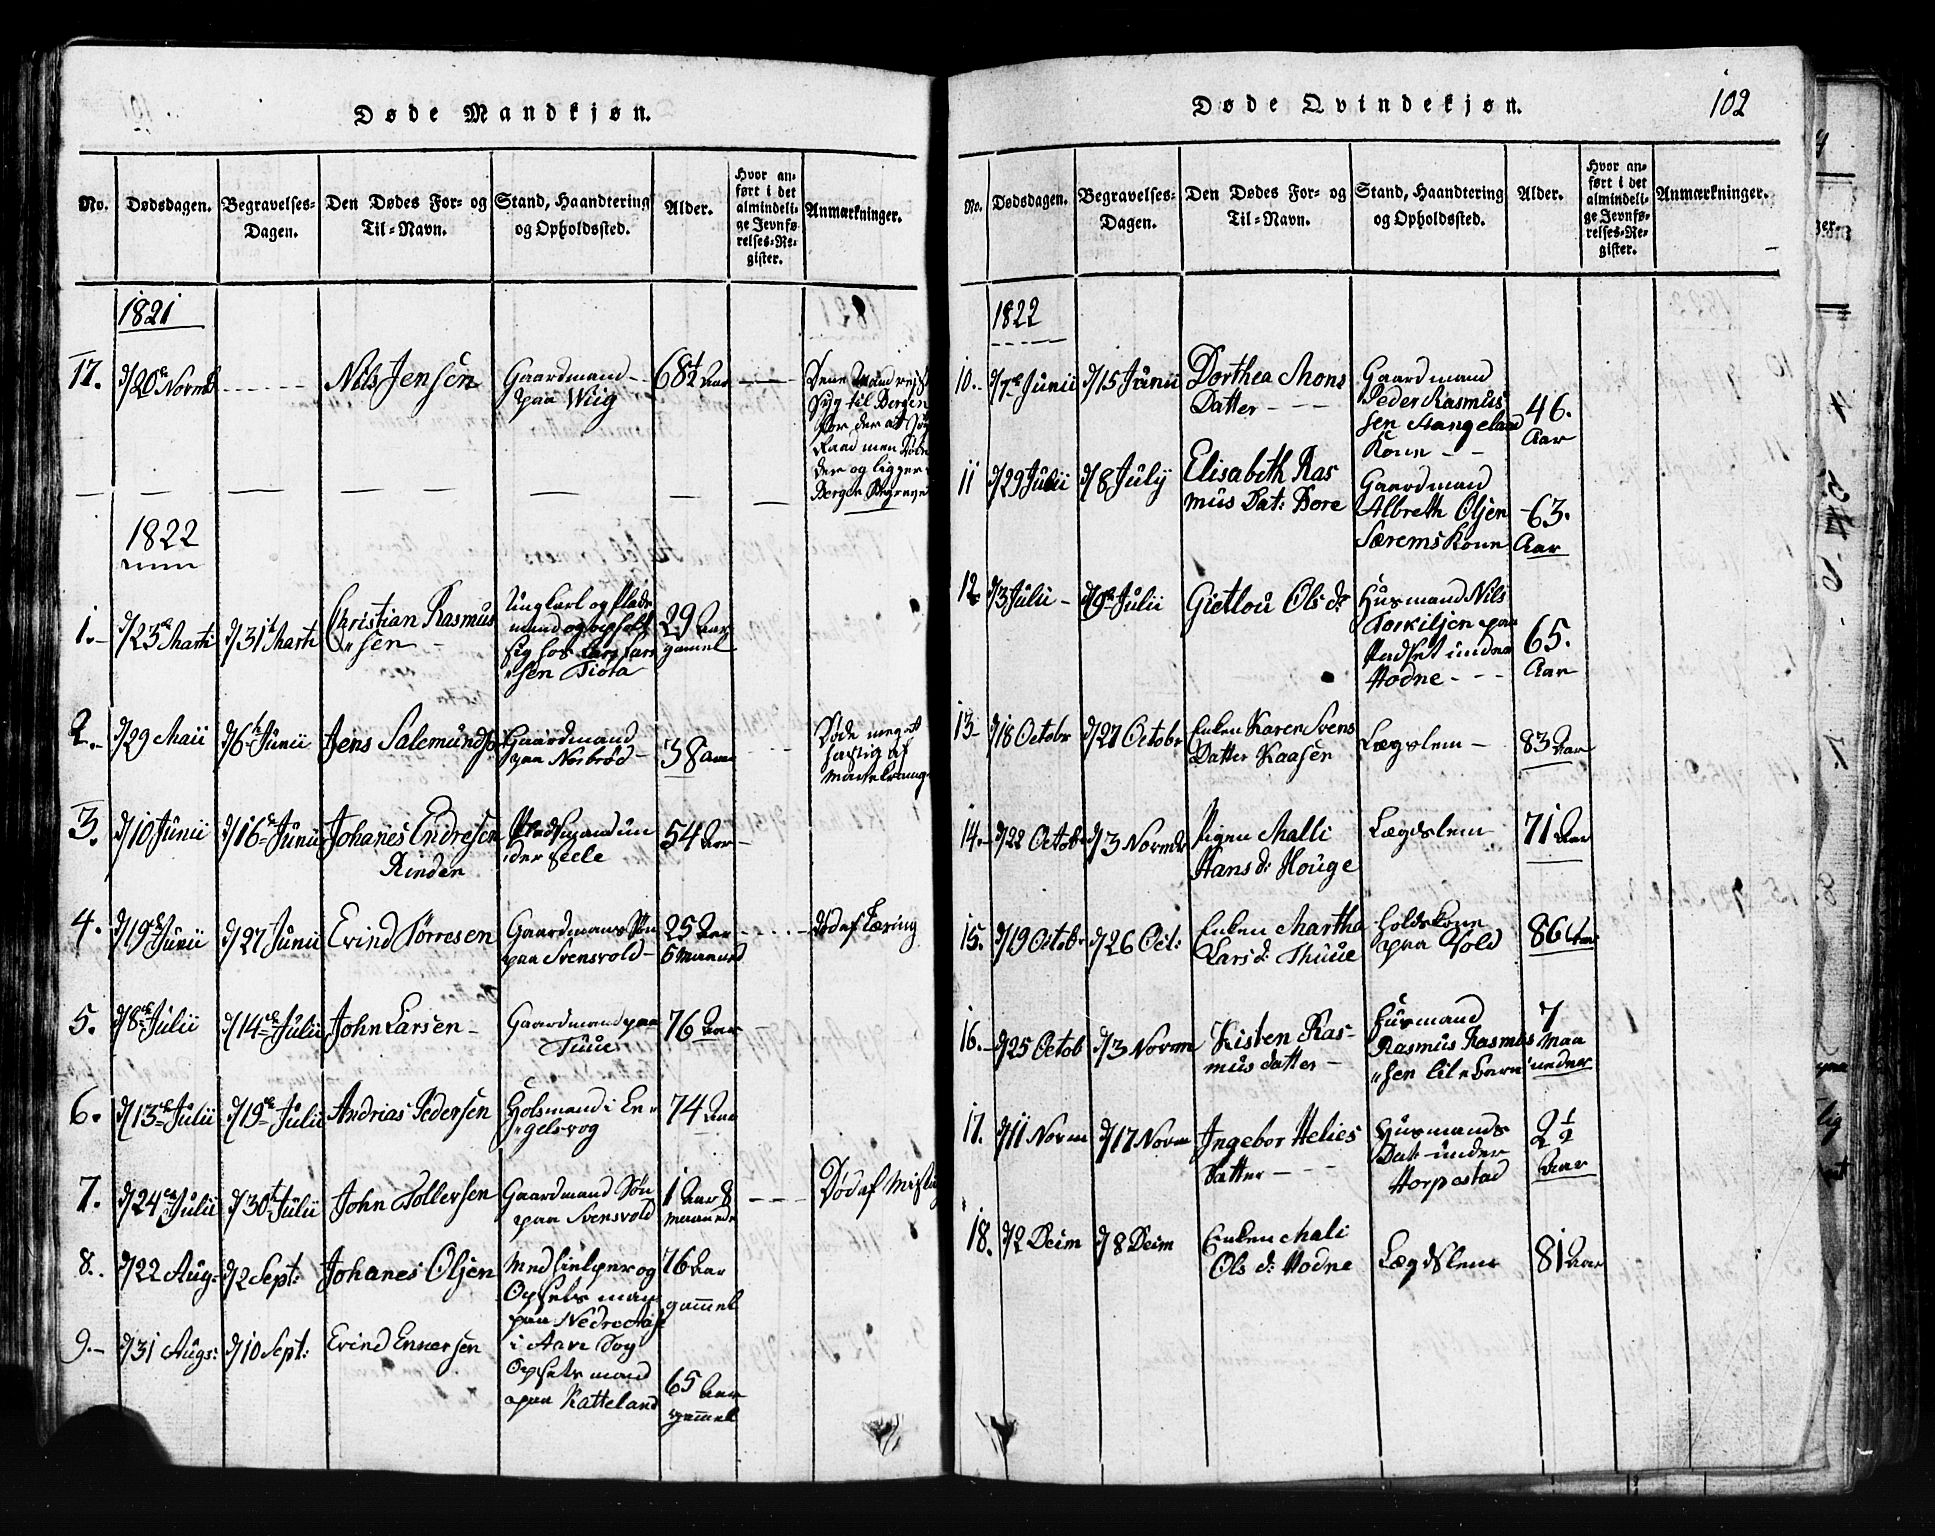 Døde Mandkjøn.
No.
Dødsdagen.
Begravelses-
Dagen.
Den Dødes For- og
Til-Navn.
Stand, Haandtering
og Opholdssted.
Alder.
Hvor an-
ført i det
almindeli-
ge Jevnfø-
relses-Re-
gister.
Anmærkninger.
1821
17.
d/20 Novmb
Nils Jensen
Gaardmand
paa Wiig
68½ Aar
Syg til Bergen
for der at søg
Raad men døde
der og ligger i
Bergen Begravet
1822
1.
d/23de Marti
d/31te Marti
Christian Rasmus
"sen
Ungkarl og
29 Aar
gamel
sig hos Lars Lars
"sen Tiøta
2.
d/29 Maii
d/6te Junii
Jens Salemunds:
Gaardmand
paa Nesbrød
38 Aar
Døde meget
hastig af
3.
d/10 Junii
d/16de Junii
Johanes Endresen
Rindan
Pladsmand un
der Seele
54 Aar
4.
d/19de Junii
d/27 Junii
Evind Tørresen
Gaardmans Søn
paa Svensvold
25 Aar
6 Maaned
Død af Tæring
5.
d/8de Julii
d/14de Julii
John Larsen
Gaardmand paa
Tuue
76 Aar
6.
d/13de Julii
d/19de Julii
Andrias Pedersen
Holsmand i En
"gelsvog
74 Aar
7.
d/24de Julii
d/30te Julii
John Tollersen
Gaardmand Søn
paa Svensvold
1 Aar 8
maaneder
Død af
8.
d/22 Aug:
d/2 Sept:
Johanes Olsen
Medhielper og
Opsets man
paa Nedre
i Aare Sog
76 Aar
gammel
9.
d/31 Augs:
d/10 Sept:
Evind Ennersen
Opsets mand
paa Katteland
65 Aar
gammel
Døde Qvindekjøn.
102
No.
Dødsdagen.
Begravelses-
Dagen.
Den Dødes For- og
Til-Navn.
Stand, Haandtering
og Opholdssted.
Alder.
Hvor an-
ført i det
almindeli-
ge Jevnfø-
relses-Re-
gister.
Anmærkninger.
1822
10.
d/7de Junii
d/15 Junii
Dorthea Mons
Datter
Gaardmand
Peder Rasmus
sen Stangeland
Kone
46.
Aar
11
d/29 Julii
d/8 July
Elisabeth Ras
mus Dat: Bore
Gaardmand
Albreth Olsen
Særems Kone
63.
Aar
12
d/3 Julii
d/9de Julii
Gietlou Ols d:
Husmand Nils
Torkilsen paa
Pladset under
Hodne
65.
Aar
13
d/18 Octobr
d/27 Octobr
Enken Karen Svens
Datter Kaasen
Lægslem
83 Aar
14.
d/22 Octob
d/3 Novmbr
Pigen Malli
Hans d: Houge
Lægdslem
71 Aar
15.
d/19 Octobr
d/26 Oct:
Enken Martha
Lars d: Thuue
Holdskone
paa Vold
86 Aar
16.
d/25 Octob
d/3 Novm
Kisten Ras-
mus datter
Husmand
Rasmus Rasmus
"sen lile barn
7
Maa
neder
17.
d/11 Novm
d/17 Novm
Ingebor Helies
Datter
Husmands
Dat: under
Horpestad
2½
Aar
18.
d/2 Decm
d/8 Decm
Enken Mali
Ols d: Hodne
Lægdslem
81 Aar